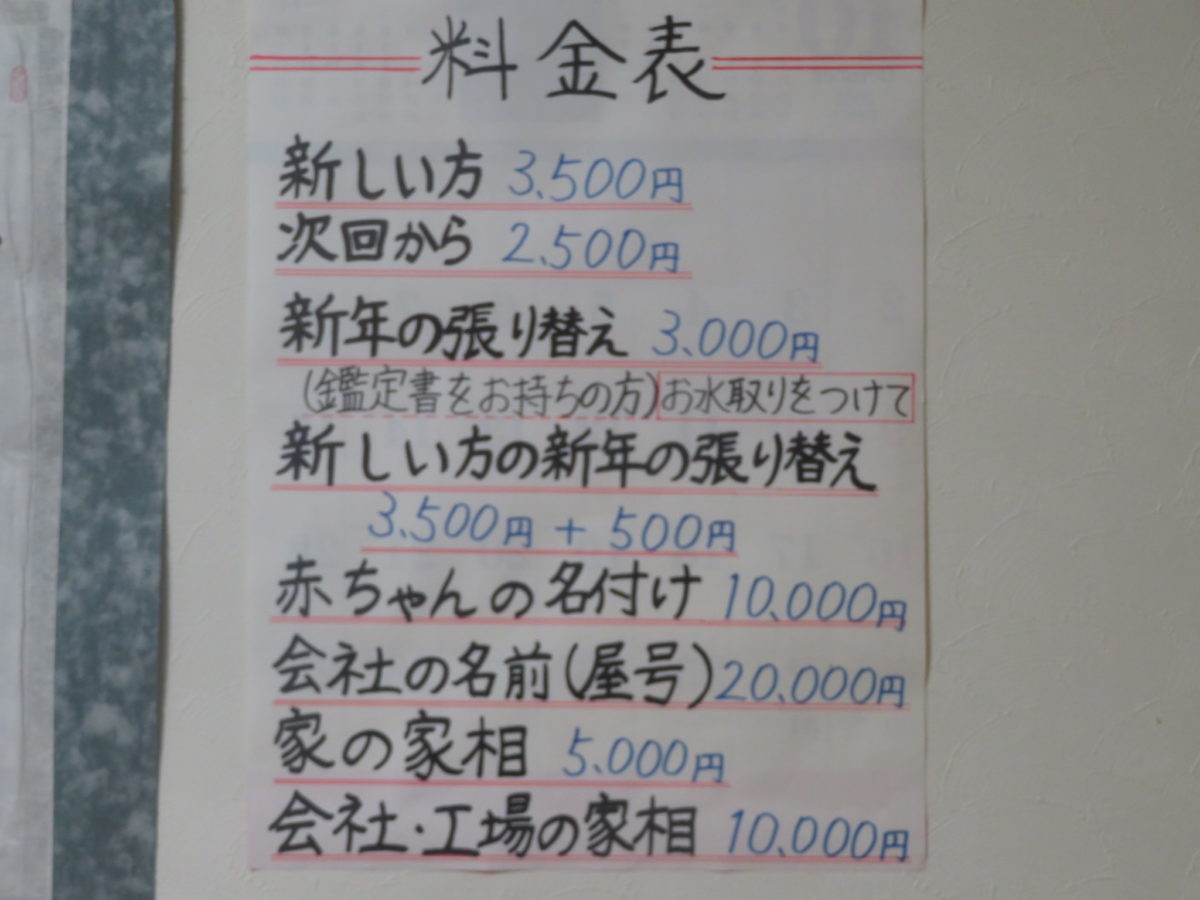 料金表
新しい方 3,500円
次回から 2,500円
新年の張り替え 3,000円
(鑑定書をお持ちの方)お水取りをつけて
新しい方の新年の張り替え
3,500円 + 500円
赤ちゃんの名付け 10,000円
会社の名前(屋号)20,000円
家の家相 5,000円
会社・工場の家相 10,000円